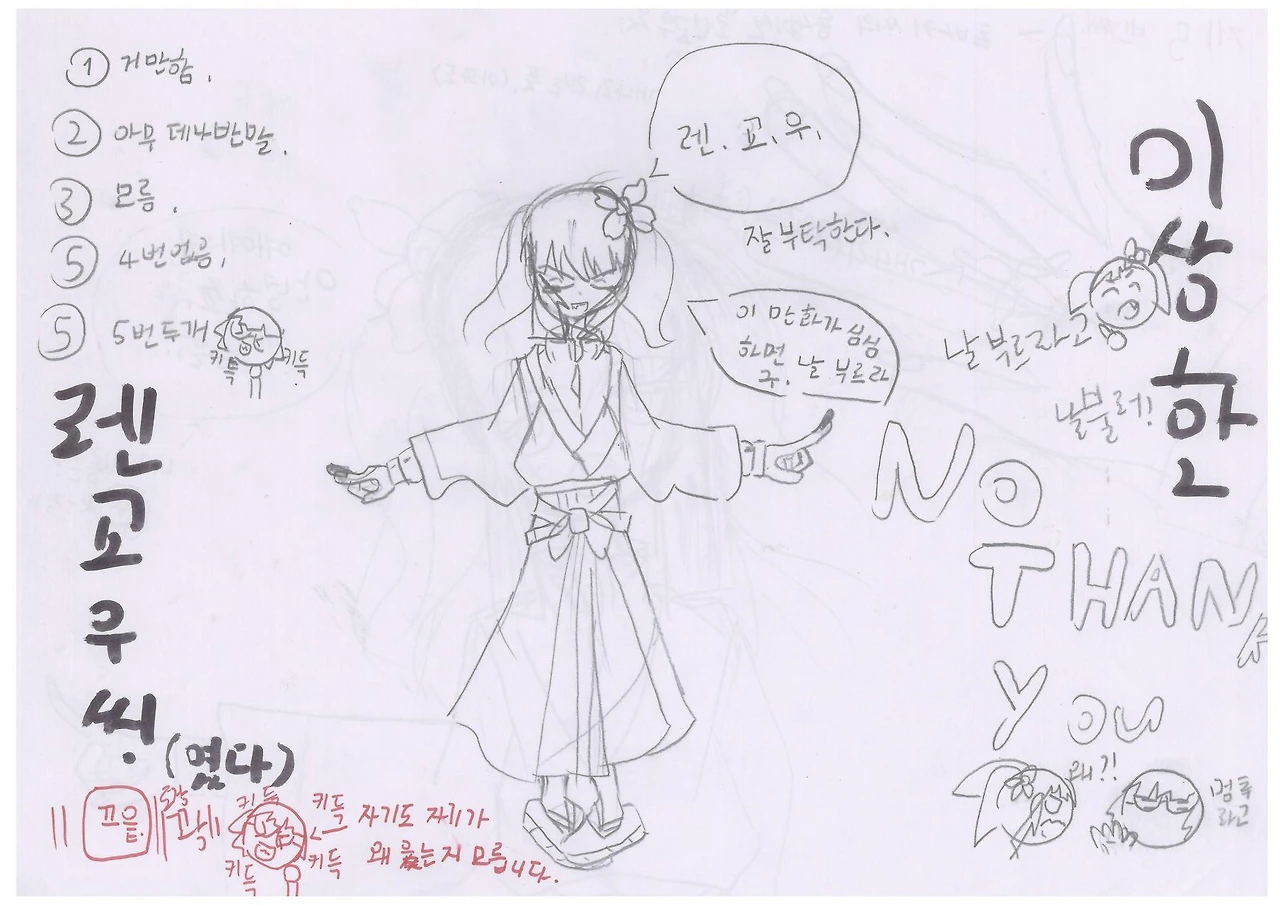 ① 거만함.
② 아무 데나 반말.
③ 모름.
⑤ 4번 없음.
⑤ 5번 두개
키득
키득
렌고우씽.
(옜다)
렌.고.우.
잘 부탁한다.
이 만화가 심심
하면
구. 날 부르라
이상한
날 부르라고
날 불러!
NO
THANK
YOU
왜?!
끄읕.
키득
키득
키득
키득
자기도 자기가
왜 웃는지 모릅니다.